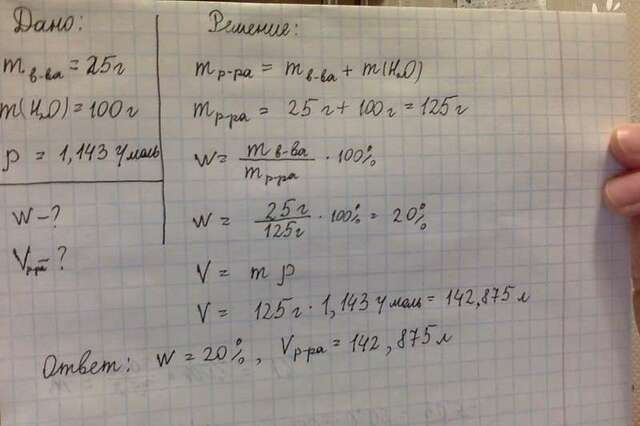 Дано:
m в-ва = 25г
m(H₂O) = 100г
ρ = 1,143 г/моль
W - ?
Vр-ра - ?
Решение:
m р-ра = m в-ва + m(H₂O)
m р-ра = 25г + 100г = 125г
W = m в-ва / m р-ра · 100%
W = 25г / 125г · 100% = 20%
V = m ρ
V = 125г · 1,143 г/моль = 142,875 л
Ответ: W = 20%, Vр-ра = 142,875 л